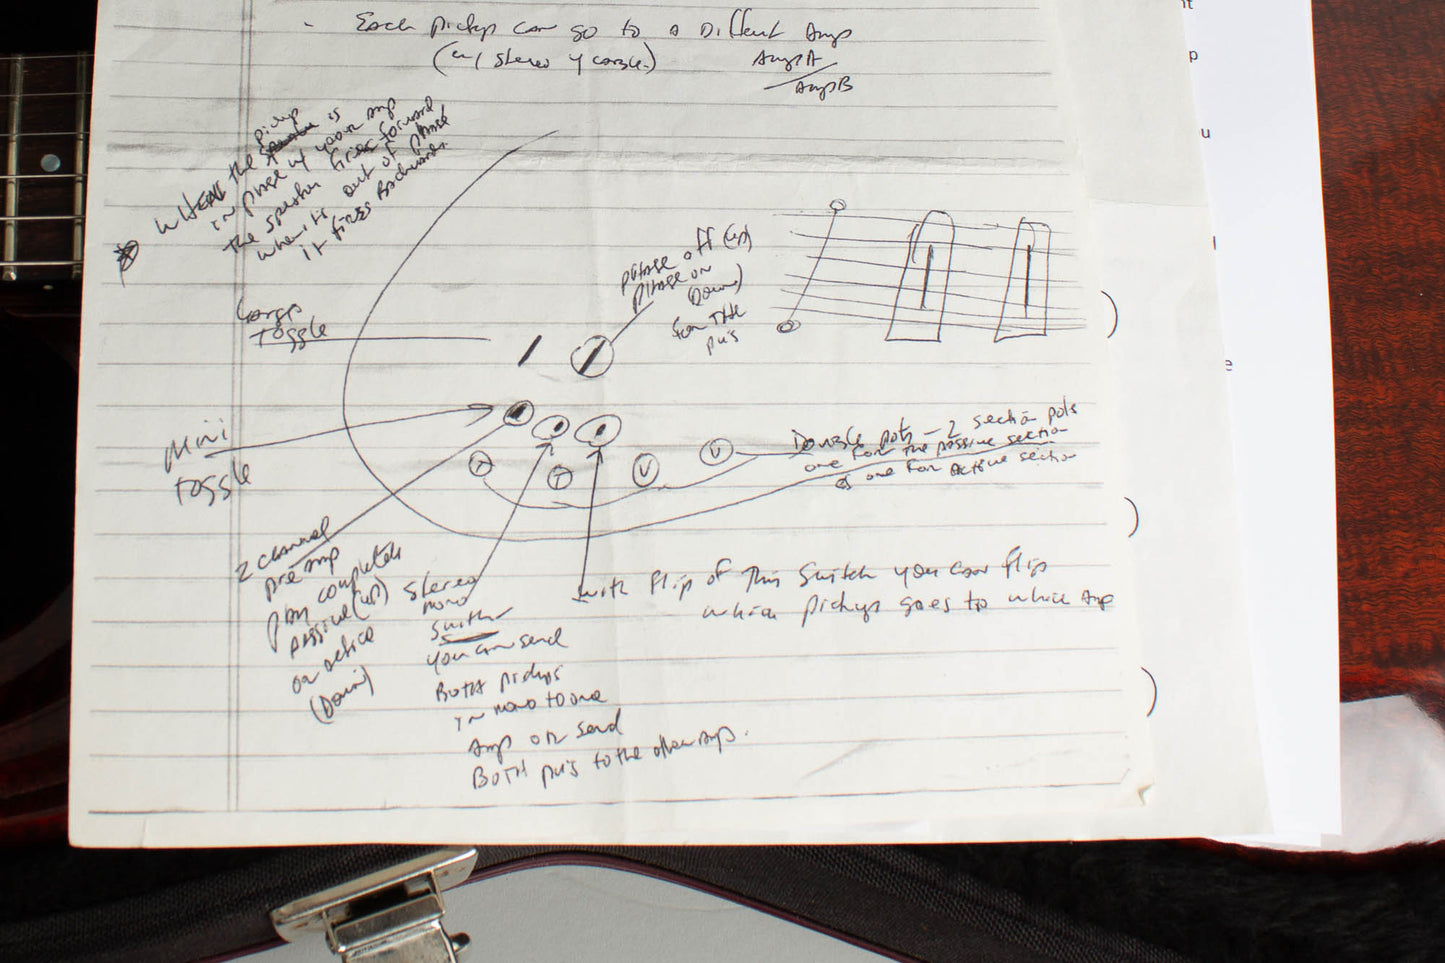 - Each pickup can go to a Different Amp
(w/ stereo y cable.)
Amp A
Amp B
pickup
WHEN the is
in phase w/ your amp
the speaker fires forward
when it is out of phase
it fires Backwards.
Large
Toggle
Mini
Toggle
phase off (up)
phase on
(Down)
for THE
pu's
T
T
V
V
Double pots - 2 section pots
one for the passive section
& one for Active section
2 channel
pre amp
play completely
passive (up)
or active
(Down)
Stereo
mono
switch
you can send
BOTH pickups
in mono to one
Amp or send
BOTH pu's to the other amp.
with flip of This Switch you can flip
which pickup goes to which Amp
nt
p
u
l
e